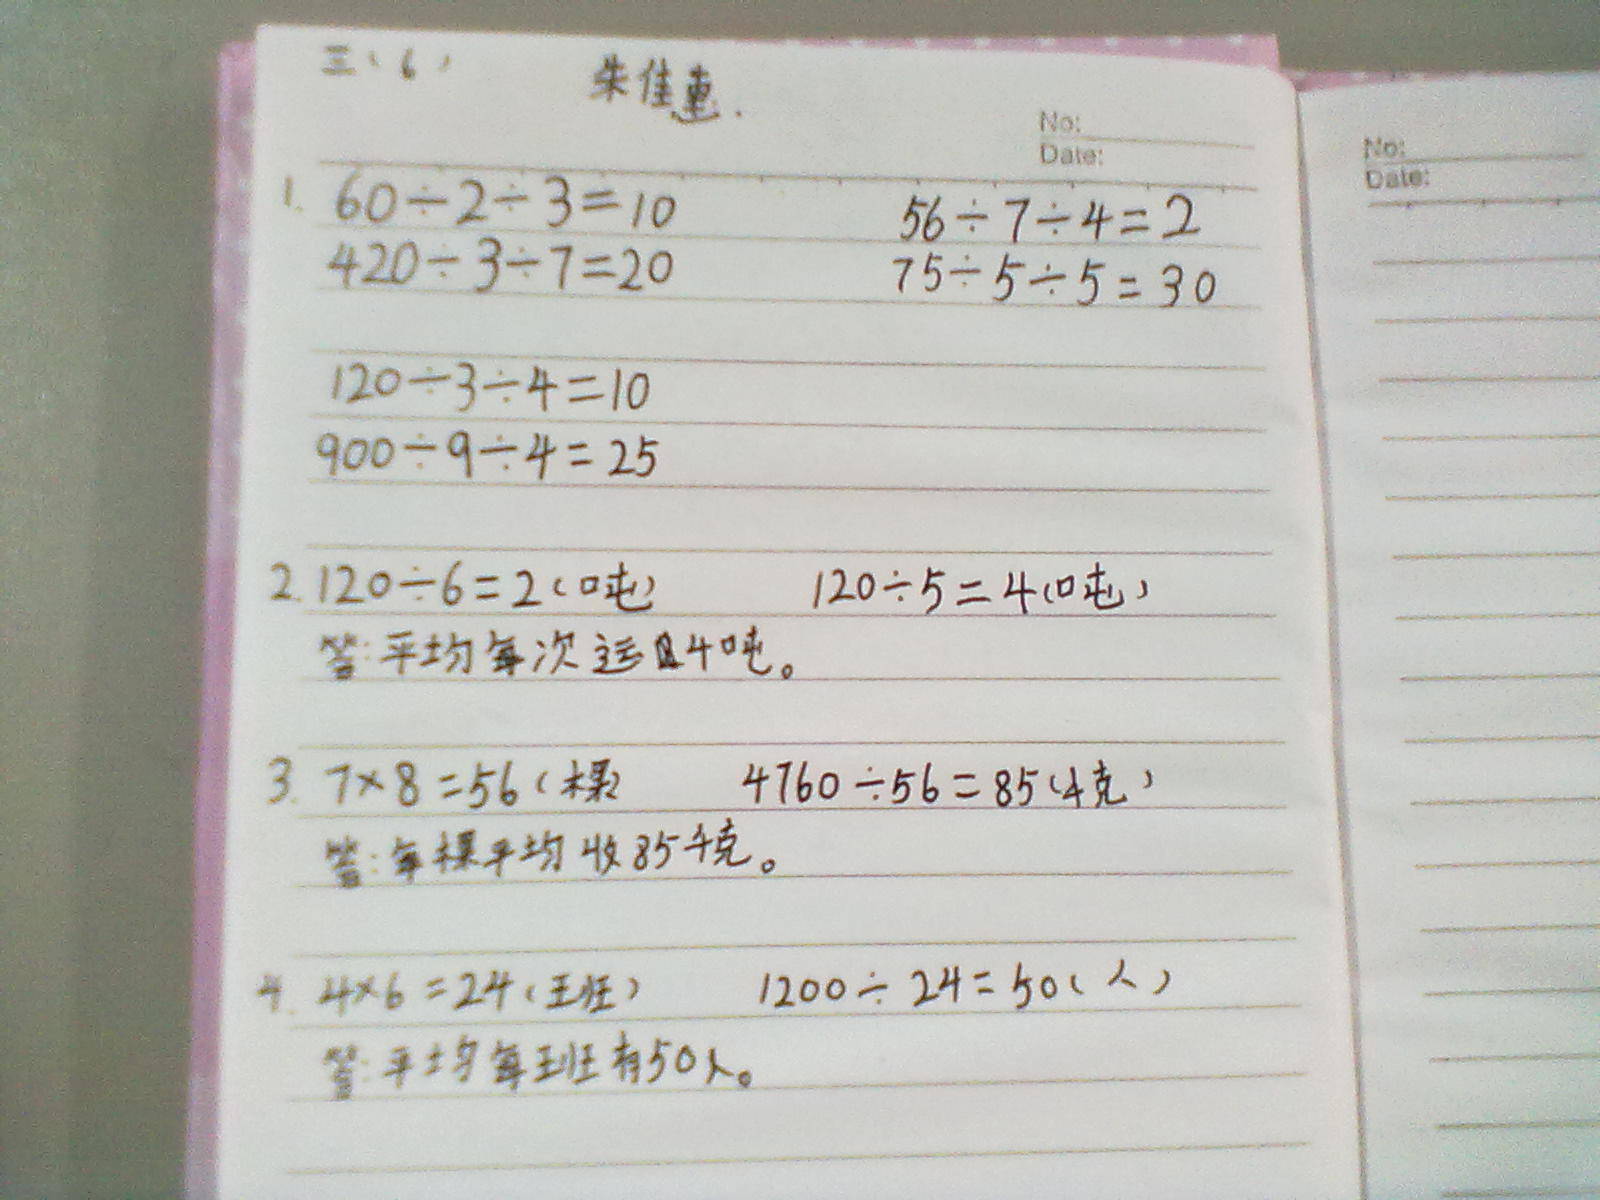 三（6）
朱佳惠.
No:
Date:
No:
Date:
1. 60÷2÷3=10 56÷7÷4=2
420÷3÷7=20 75÷5÷5=30
120÷3÷4=10
900÷9÷4=25
2. 120÷6=2（吨） 120÷5=4（吨）
答:平均每次运4吨。
3. 7×8=56（棵） 4760÷56=85（千克）
答:每棵平均收85千克。
4. 4×6=24（班） 1200÷24=50（人）
答:平均每班有50人。